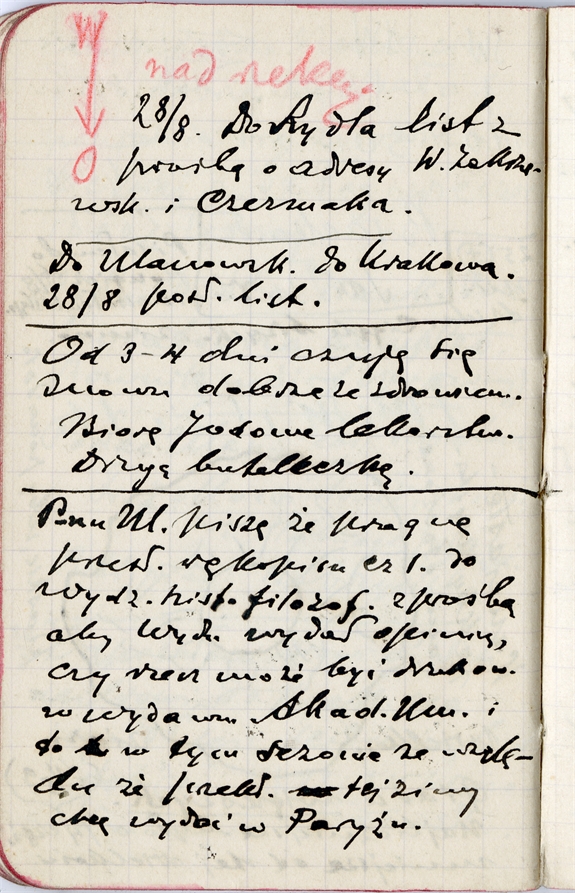 W
O
nad rzeką.
28/8. Do Rydla list z
prośbą o adresy W. Zakrze-
wsk. i Czermaka.
Do Ulanowsk. do Krakowa.
28/8 posł. list.
Od 3-4 dni czuję się
znowu dobrze ze zdrowiem.
Biorę Jodowe lekarstw.
Drugą buteleczkę.
Panu Ul. piszę że pragnę
przesł. rękopisu cz 1. do
wydz. hist. filozof. z prośbą
aby Wydz. wydał opinię,
czy rzecz może być drukow.
w wydawn. Akad. Um. i
to w tym sezonie ze wzglę-
du że przekł. tej zimy
chcę wydać w Paryżu.